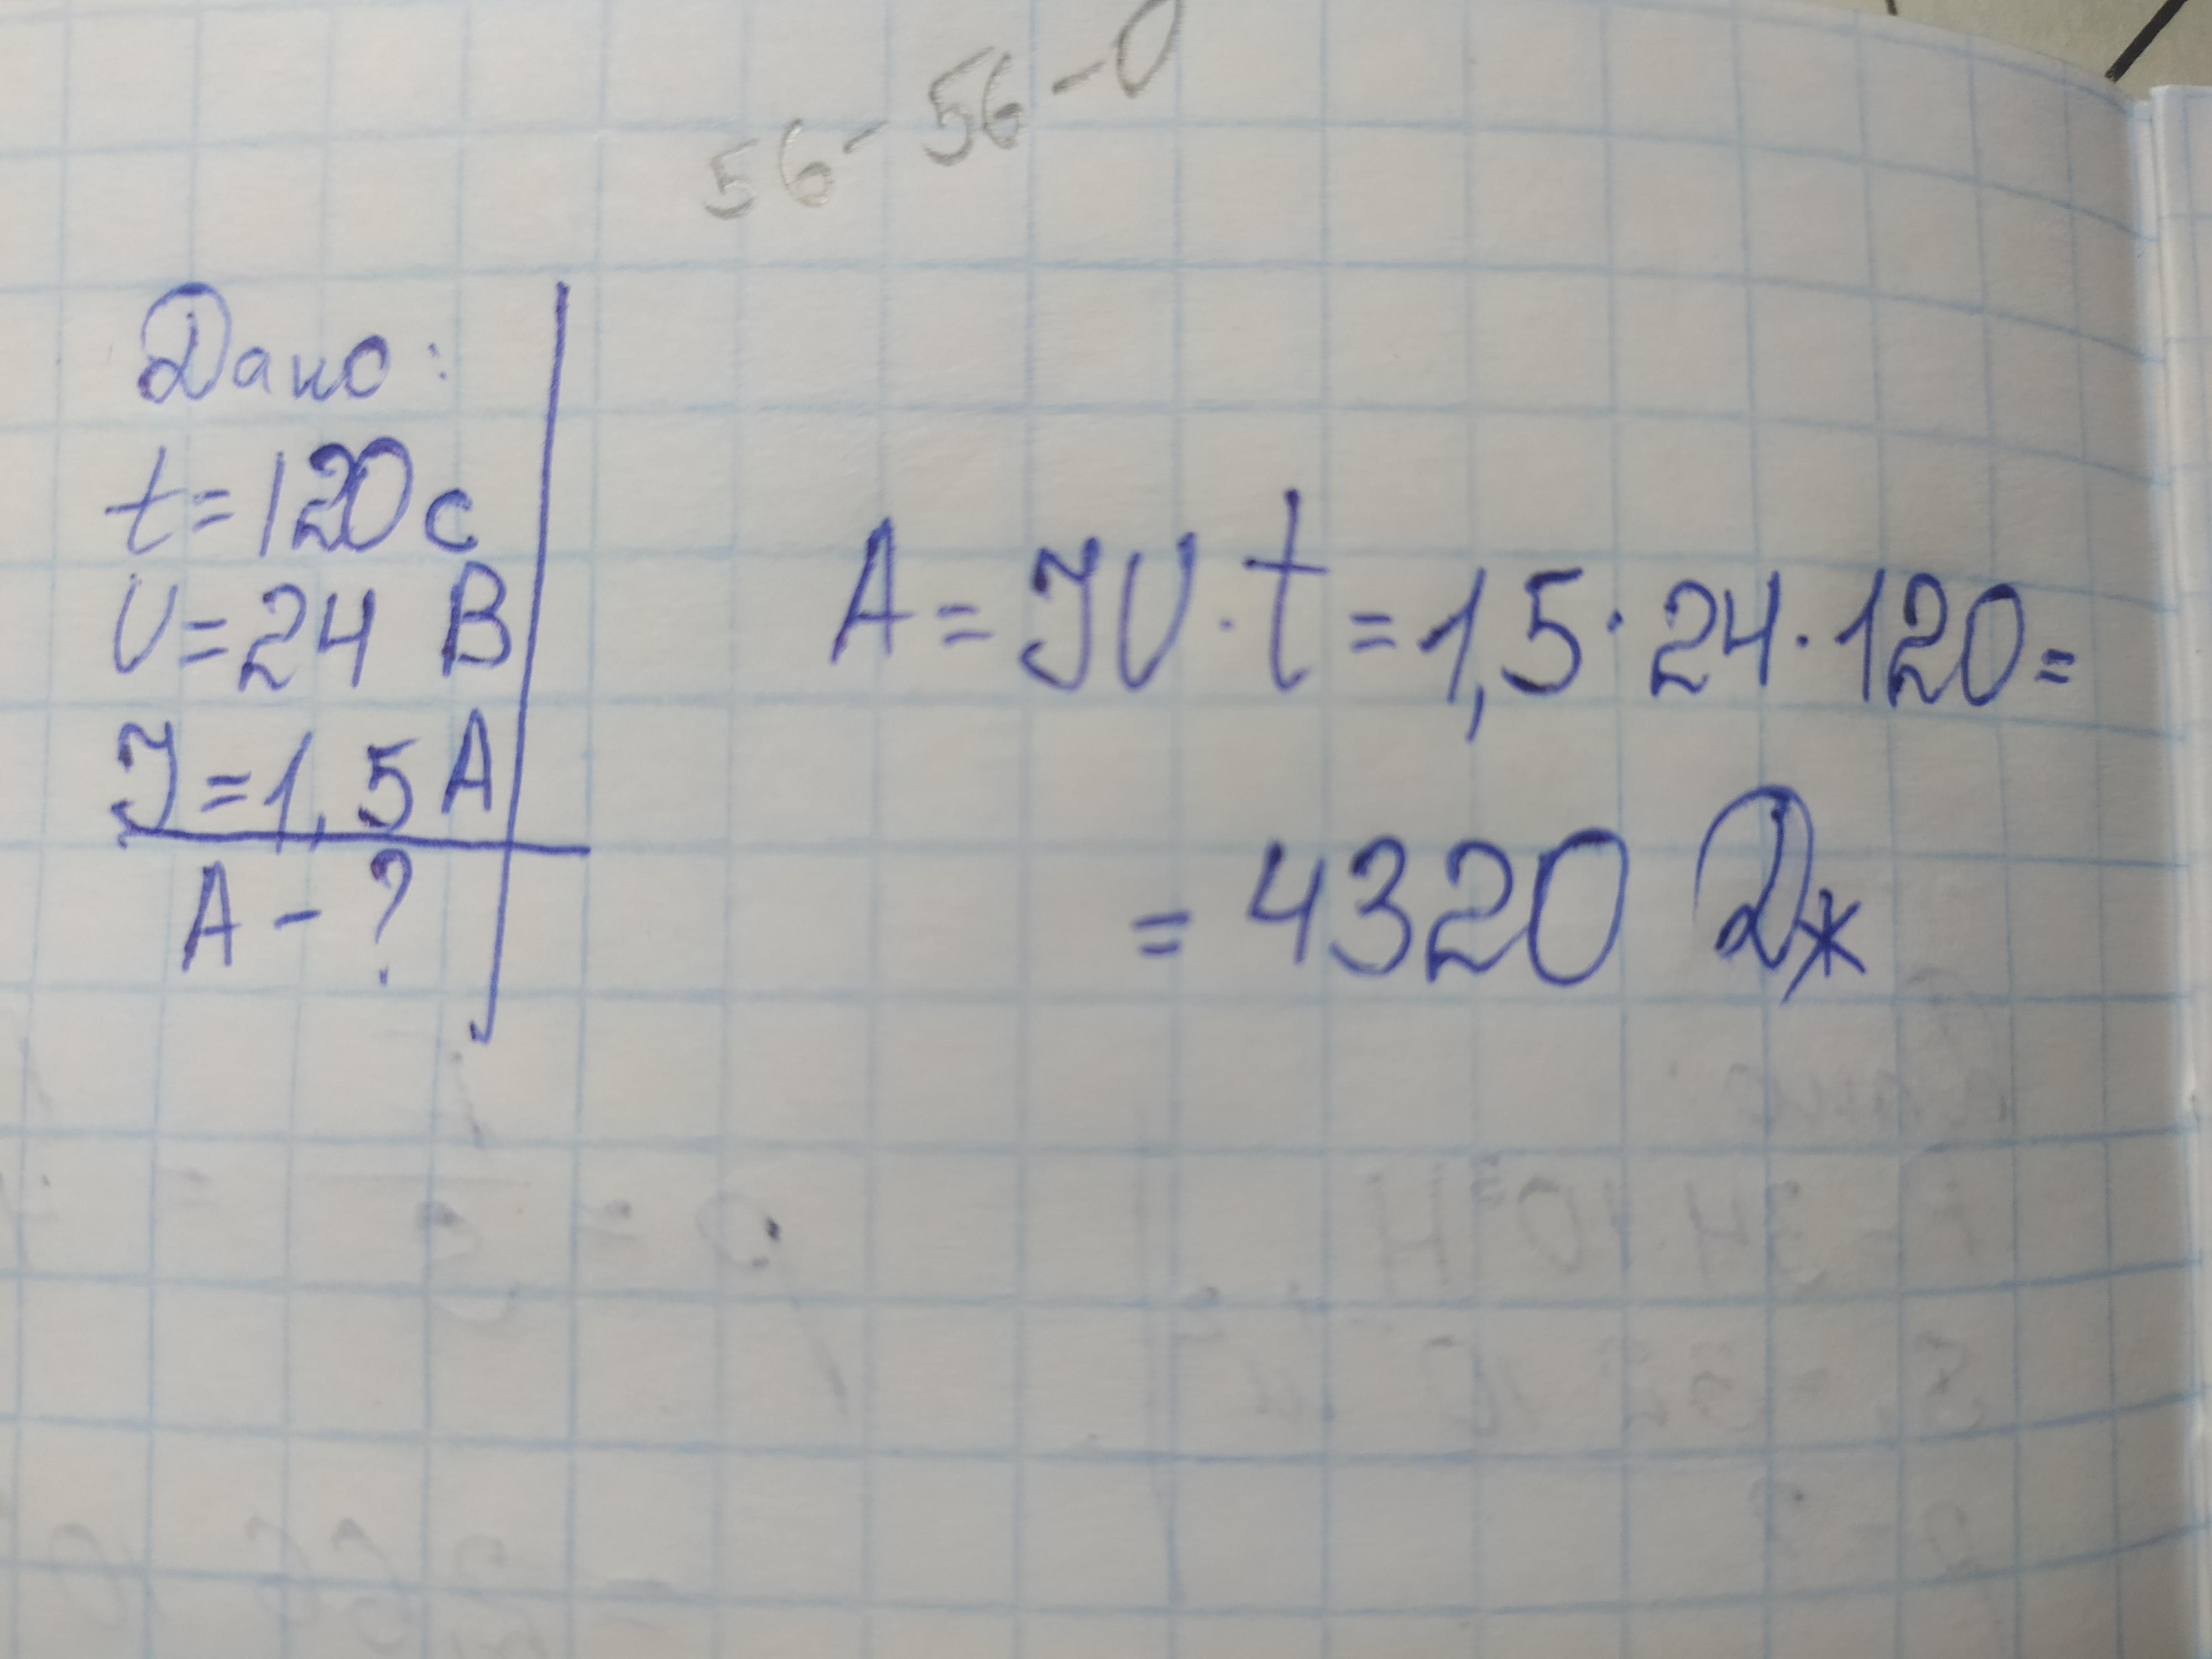 56-56-0
Дано:
t=120 с
U=24 В
I=1,5 А
А-?
A=IU·t=1,5·24·120=
=4320 Дж